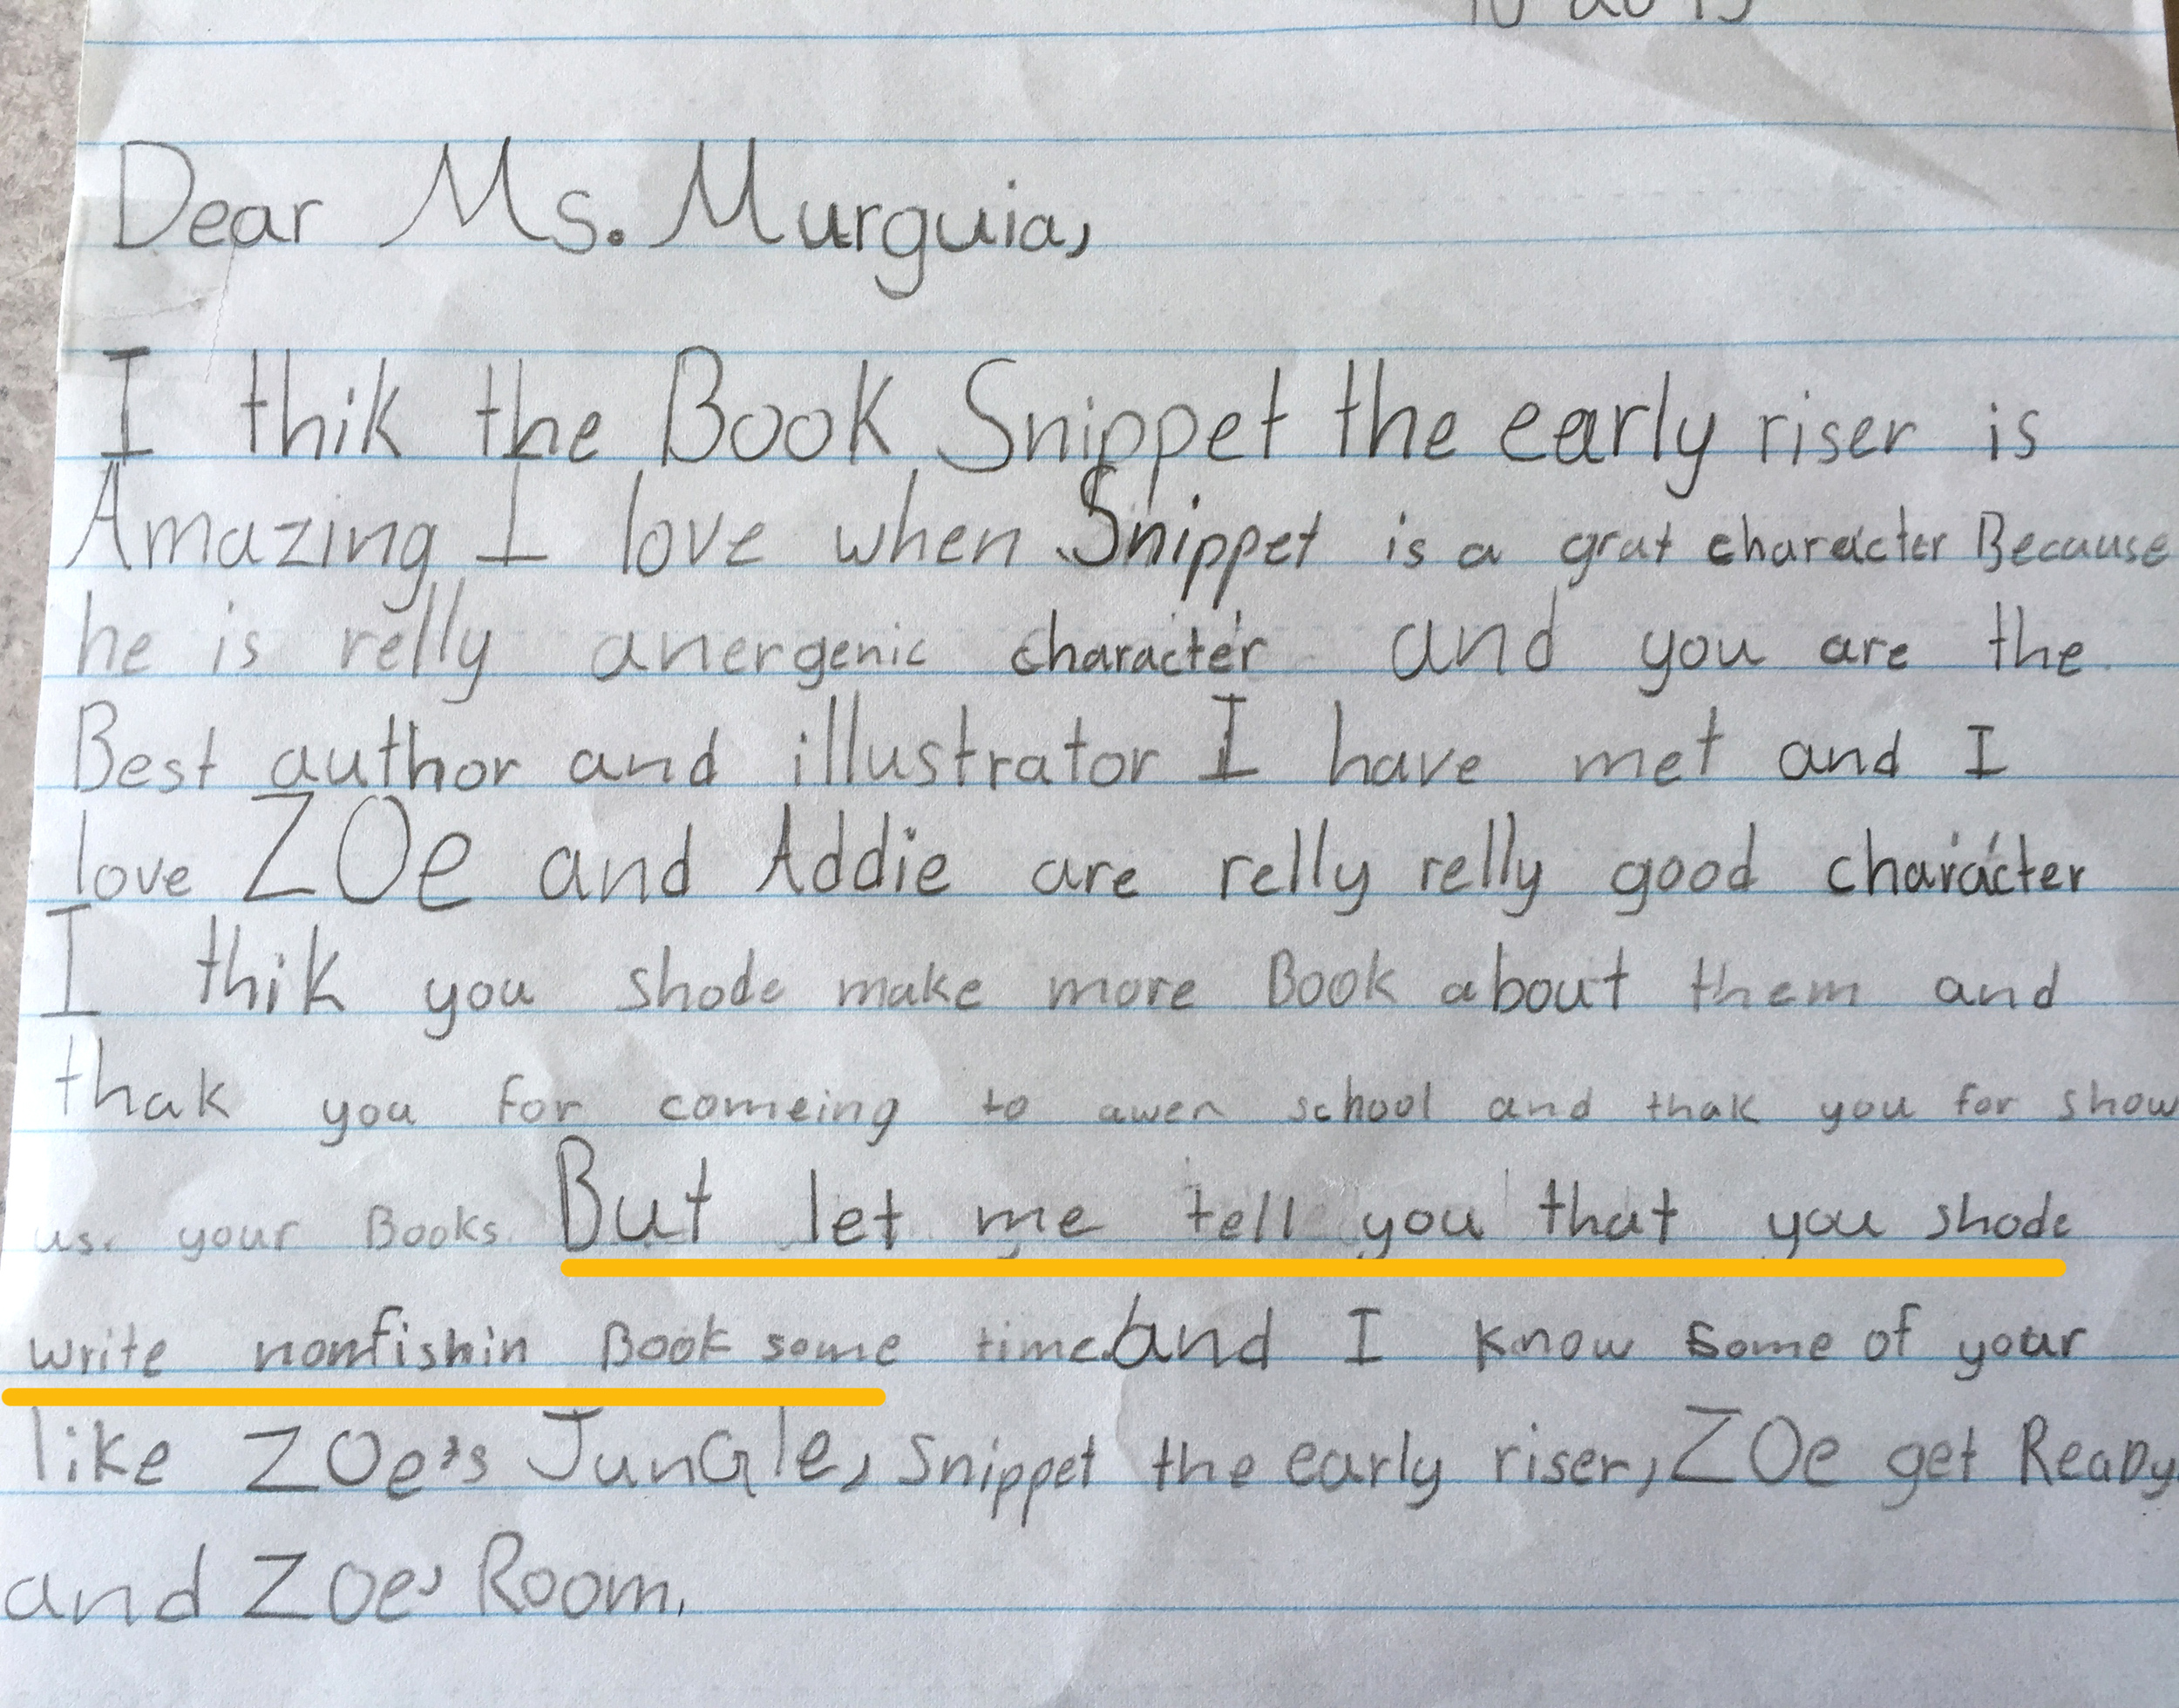 Dear Ms. Murguia,
I thik the Book Snippet the early riser is
Amazing I love when Snippet is a grat character Because
he is relly anergenic character and you are the
Best author and illustrator I have met and I
love ZOe and Addie are relly relly good character
I thik you shode make more Book about them and
thak you for comeing to awer school and thak you for show
us. your Books. But let me tell you that you shode
write nonfishin Book some time. and I know some of your
like ZOe's JunGle, Snippet the early riser, ZOe get ReaDy
and ZOe' Room.